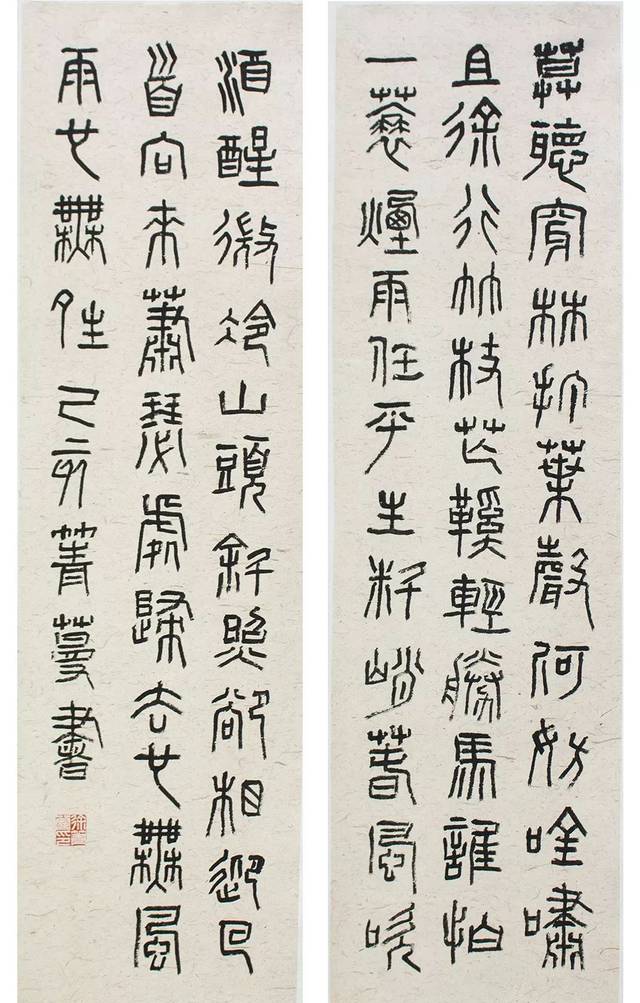 莫聽穿林打葉聲何妨唫嘯
且徐行竹杖芒鞵輕勝馬誰怕
一蓑煙雨任平生料峭春風吹
酒醒微冷山頭斜照卻相迎回
首向來蕭瑟處歸去也無風
雨也無晴己亥菁蔓書